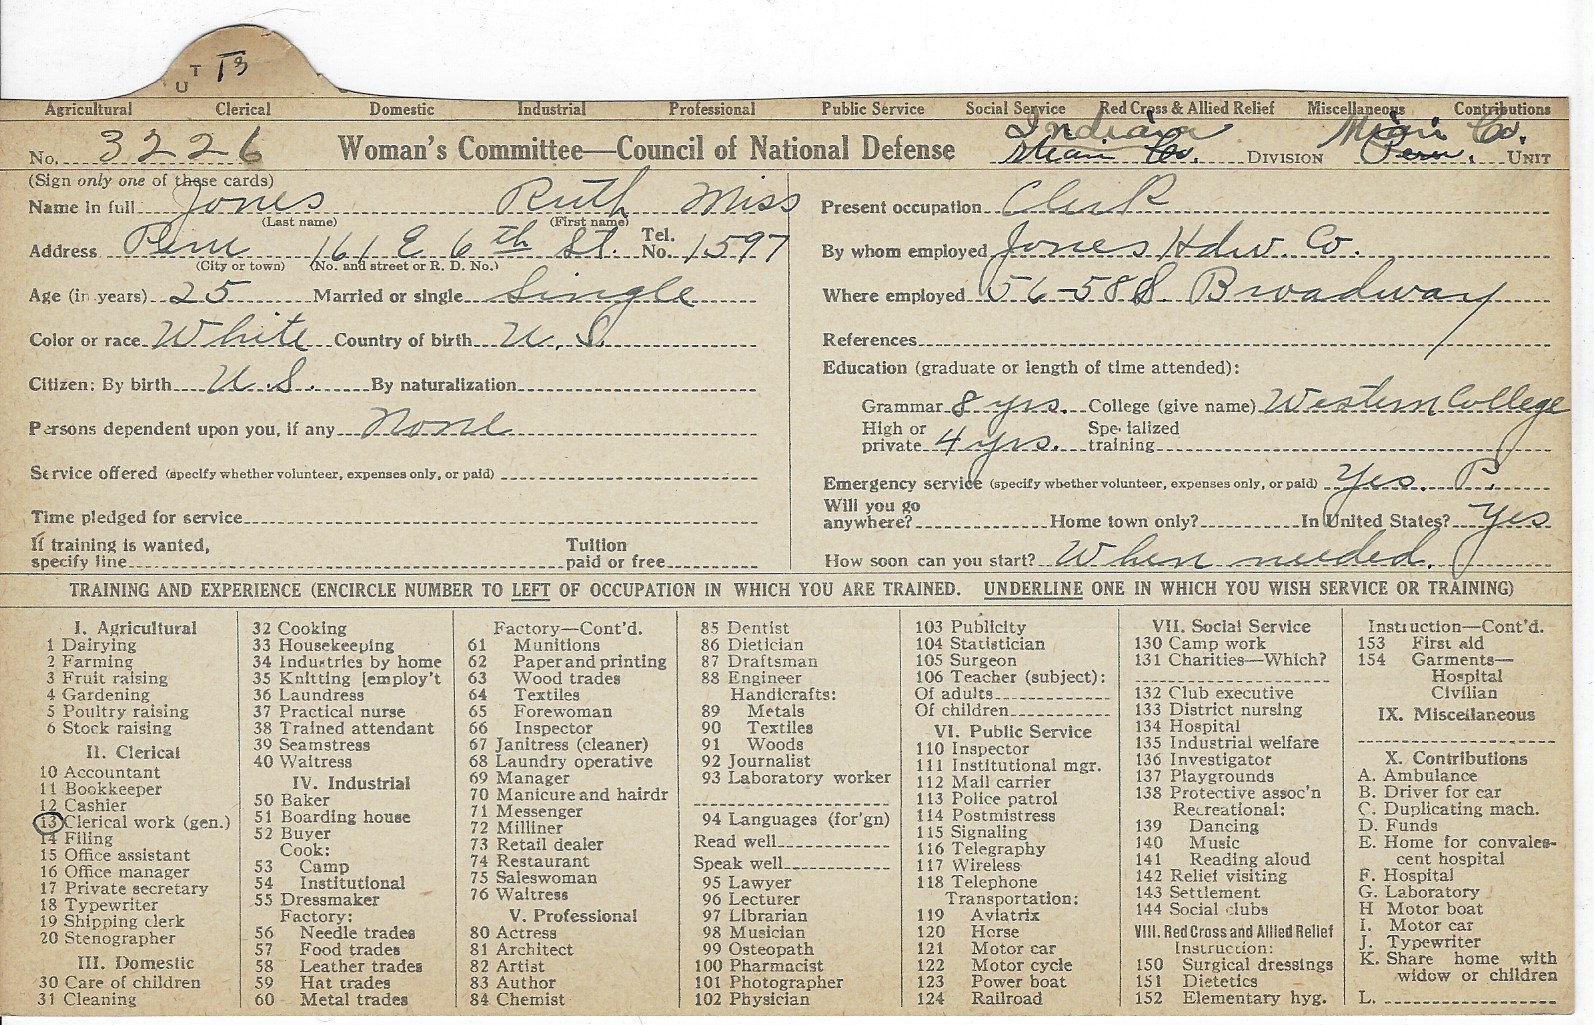 U T 13
Agricultural Clerical Domestic Industrial Professional Public Service Social Service Red Cross & Allied Relief Miscellaneous Contributions
No. 3226 Woman's Committee—Council of National Defense Indiana Miami Co. DIVISION Miami Co. Peru. UNIT
(Sign only one of these cards)
Name in full Jones Ruth Miss
(Last name) (First name)
Address Peru 161 E 6th St. Tel. No. 1597
(City or town) (No. and street or R. D. No.)
Age (in years) 25 Married or single Single
Color or race White Country of birth U. S.
Citizen: By birth U. S. By naturalization
Persons dependent upon you, if any None
Service offered (specify whether volunteer, expenses only, or paid)
Time pledged for service
If training is wanted,
specify line Tuition paid or free
Present occupation Clerk
By whom employed Jones Hdw. Co.
Where employed 56-58 S. Broadway
References
Education (graduate or length of time attended):
Grammar 8 yrs. College (give name) Western College
High or private 4 yrs. Specialized training
Emergency service (specify whether volunteer, expenses only, or paid) Yes. P.
Will you go anywhere? Home town only? In United States? Yes
How soon can you start? When needed.
TRAINING AND EXPERIENCE (ENCIRCLE NUMBER TO LEFT OF OCCUPATION IN WHICH YOU ARE TRAINED. UNDERLINE ONE IN WHICH YOU WISH SERVICE OR TRAINING)
I. Agricultural
1 Dairying
2 Farming
3 Fruit raising
4 Gardening
5 Poultry raising
6 Stock raising
II. Clerical
10 Accountant
11 Bookkeeper
12 Cashier
13 Clerical work (gen.)
14 Filing
15 Office assistant
16 Office manager
17 Private secretary
18 Typewriter
19 Shipping clerk
20 Stenographer
III. Domestic
30 Care of children
31 Cleaning
32 Cooking
33 Housekeeping
34 Industries by home
35 Knitting [employ't
36 Laundress
37 Practical nurse
38 Trained attendant
39 Seamstress
40 Waitress
IV. Industrial
50 Baker
51 Boarding house
52 Buyer
Cook:
53 Camp
54 Institutional
55 Dressmaker
Factory:
56 Needle trades
57 Food trades
58 Leather trades
59 Hat trades
60 Metal trades
Factory—Cont'd.
61 Munitions
62 Paper and printing
63 Wood trades
64 Textiles
65 Forewoman
66 Inspector
67 Janitress (cleaner)
68 Laundry operative
69 Manager
70 Manicure and hairdr
71 Messenger
72 Milliner
73 Retail dealer
74 Restaurant
75 Saleswoman
76 Waitress
V. Professional
80 Actress
81 Architect
82 Artist
83 Author
84 Chemist
85 Dentist
86 Dietician
87 Draftsman
88 Engineer
Handicrafts:
89 Metals
90 Textiles
91 Woods
92 Journalist
93 Laboratory worker
94 Languages (for'gn)
Read well
Speak well
95 Lawyer
96 Lecturer
97 Librarian
98 Musician
99 Osteopath
100 Pharmacist
101 Photographer
102 Physician
103 Publicity
104 Statistician
105 Surgeon
106 Teacher (subject):
Of adults
Of children
VI. Public Service
110 Inspector
111 Institutional mgr.
112 Mail carrier
113 Police patrol
114 Postmistress
115 Signaling
116 Telegraphy
117 Wireless
118 Telephone
Transportation:
119 Aviatrix
120 Horse
121 Motor car
122 Motor cycle
123 Power boat
124 Railroad
VII. Social Service
130 Camp work
131 Charities—Which?
132 Club executive
133 District nursing
134 Hospital
135 Industrial welfare
136 Investigator
137 Playgrounds
138 Protective assoc'n
Recreational:
139 Dancing
140 Music
141 Reading aloud
142 Relief visiting
143 Settlement
144 Social clubs
VIII. Red Cross and Allied Relief
Instruction:
150 Surgical dressings
151 Dietetics
152 Elementary hyg.
Instruction—Cont'd.
153 First aid
154 Garments—
Hospital
Civilian
IX. Miscellaneous
X. Contributions
A. Ambulance
B. Driver for car
C. Duplicating mach.
D. Funds
E. Home for convales-
cent hospital
F. Hospital
G. Laboratory
H Motor boat
I. Motor car
J. Typewriter
K. Share home with
widow or children
L.